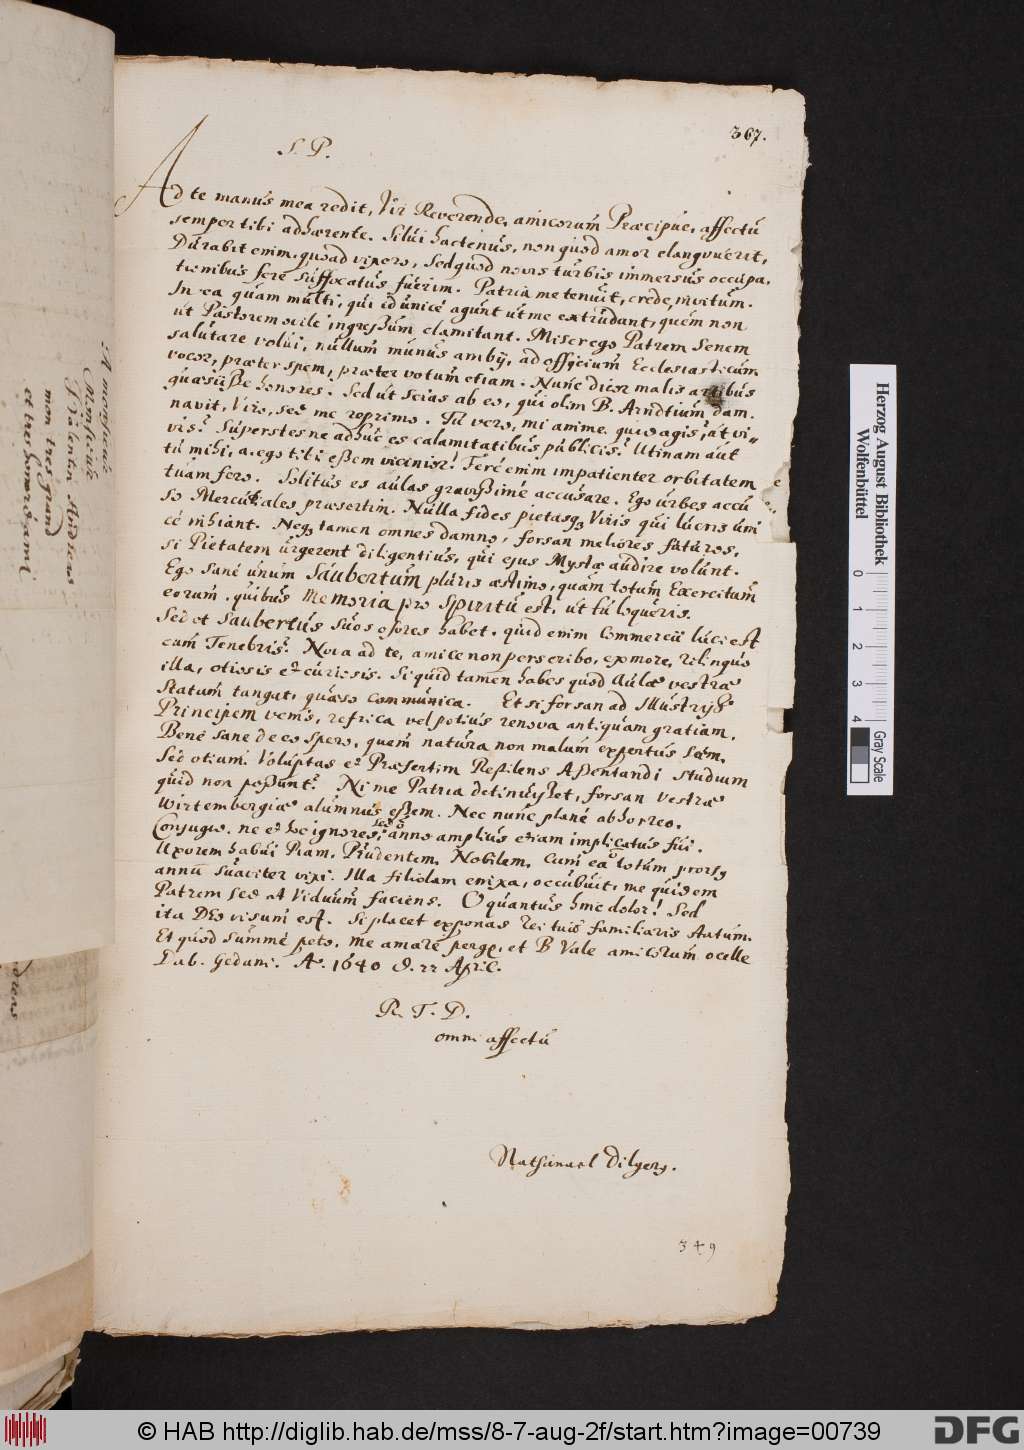 367.
S. P.
Ad te manus mea redit, Vir Reverende, amicorum Præcipue, affectu
semper tibi adhærente. Silui hactenus, non quod amor elanguerit,
Durabit enim, quoad vixero, sed quod novis turbis immersus occupa-
tionibus fere suffocatus fuerim. Patria me tenuit, crede, invitum.
In ea quam multi, qui id unicé agunt ut me extrudant, quem non
ut Pastorem ovile ingressum clamitant. Miser ego Patrem Senem
salutare volui, nullum munus ambij, ad officium Ecclesiasticum
vocor, præter spem, præter votum etiam. Nunc dicor malis artibus
quæsiisse honores. Sed ut scias ab eo, qui olim B. Arndtium dam-
navit, Viro, sed me reprimo. Tu vero, mi anime, quid agis? at vi-
vis? Superstes ne adhuc es calamitatibus publicis? Utinam aut
tu mihi, a. ego tibi essem vicinior! Feré enim impatienter orbitatem
tuam fero. Solitus es aulas gravissimé accusare. Ego urbes accu
so Mercuriales præsertim. Nulla fides pietasq Viris qui lucris uni
cé inhiant. Neq tamen omnes damno, forsan meliores futuros,
si Pietatem urgerent diligentius, qui ejus Mystæ audire volunt.
Ego sané unum Saubertum pluris æstimo, quam totum Exercitum
eorum, quibus Memoria pro Spiritu est, ut tu loqueris.
Sed et Saubertus suos osores habet. quid enim Commercii luci est
cum Tenebris? Nova ad te, amice non perscribo, ex more, relinquo
illa, otiosis et curiosis. Si quid tamen habes quod Aulæ vestræ
Statum tangat, quæso communica. Et si forsan ad Illustriss
Principem venis, refrica vel potius renova antiquam gratiam.
Bené sane de eo spero, quem natura non malum expertus sum.
Sed otium. Voluptas et Præsertim Pestilens Assentandi studium
quid non possunt? Ni me Patria detinuisset, forsan Vestræ
Wirtembergiæ alumnus essem. Nec nunc plané abhorreo.
Conjugio, ne et hoc ignores, anno amplius etiam implicatus fui.
Uxorem habui Piam, Prudentem, Nobilem. Cum ea totum prorsq
annu suaviter vixi. Illa filiolam enixa, occubuit, me quidem
Patrem sed at Viduum faciens. O quantus hinc dolor! Sed
ita DEO visum est. Si placet exponas rei tuis familiaris statum.
Et quod summé peto, me amare perge, et B Vale amicorum ocelle
Dab. Gedani. Aº. 1640 d. 22 April.
R. T. D.
omni affectu
Nathanael Dilgerq.
349
A monsieur
Monsieur
mon tres grand
et tres honoré ami
Herzog August Bibliothek
Wolfenbüttel
0 1 2 3 4
Gray Scale
© HAB http://diglib.hab.de/mss/8-7-aug-2f/start.htm?image=00739
DFG